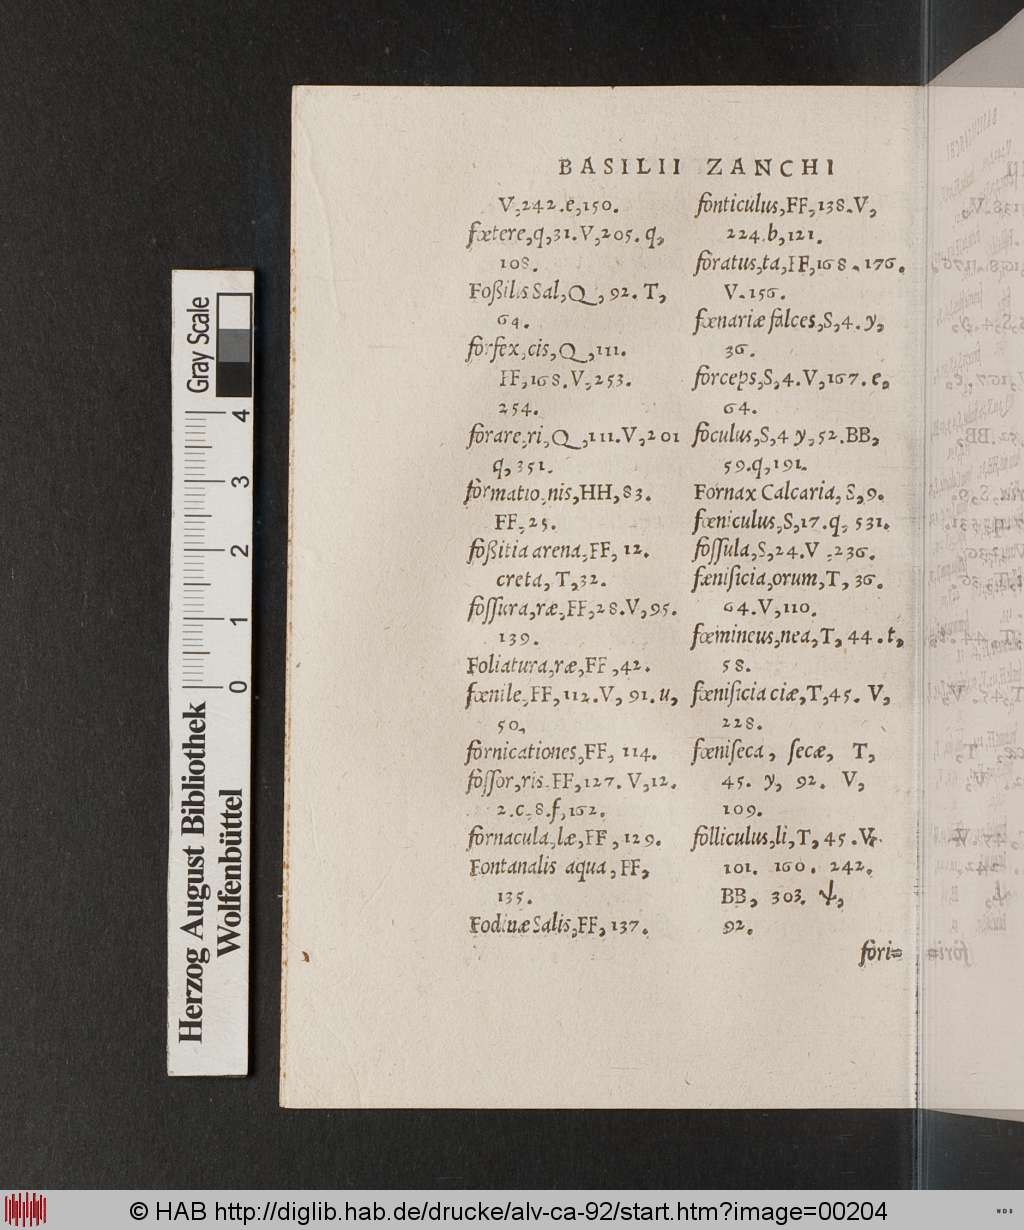 BASILII ZANCHI
V,242.e,150.
fœtere,q,31.V,205.q,
108.
Foßilis Sal,Q, 92. T,
64.
forfex,cis,Q,111.
FF,168.V,253.
254.
forare,ri,Q,111.V,201
q,351.
formatio,nis,HH,83.
FF,25.
foßitia arena,FF, 12.
creta, T,32.
foſſura,ræ,FF,28.V,95.
139.
Foliatura,ræ,FF,42.
fœnile,FF,112.V, 91.u,
50,
fornicationes,FF, 114.
foſſor,ris.FF,127. V,12.
2.c.8.f,162.
fornacula,læ,FF, 129.
Fontanalis aqua, FF,
135.
Fodinæ Salis,FF,137.
fonticulus,FF,138.V,
224.b,121.
foratus,ta,FF,168.176.
V.156.
fœnariæ falces,S,4.y,
36.
forceps,S,4.V,167.e,
64.
foculus,S,4 y,52.BB,
59.q,191.
Fornax Calcaria, S,9.
fœniculus,S,17.q, 531.
foſſula,S,24.V ,236.
fæniſicia,orum,T, 36.
64.V,110.
fœmineus,nea,T, 44.t,
58.
fœniſicia ciæ,T,45. V,
228.
fœniſeca, ſecæ, T,
45. y, 92. V,
109.
folliculus,li,T, 45.V.
101. 160. 242.
BB, 303. ψ,
92.
fori=
Gray Scale
4
3
2
1
0
Herzog August Bibliothek
Wolfenbüttel
© HAB http://diglib.hab.de/drucke/alv-ca-92/start.htm?image=00204